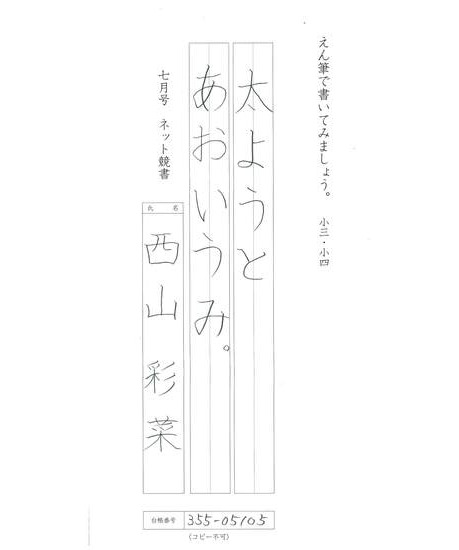 えん筆で書いてみましょう。 小三・小四
太ようと
あおいうみ。
七月号 ネット競書
氏名
西山彩菜
台帳番号 355-05105
(コピー不可)